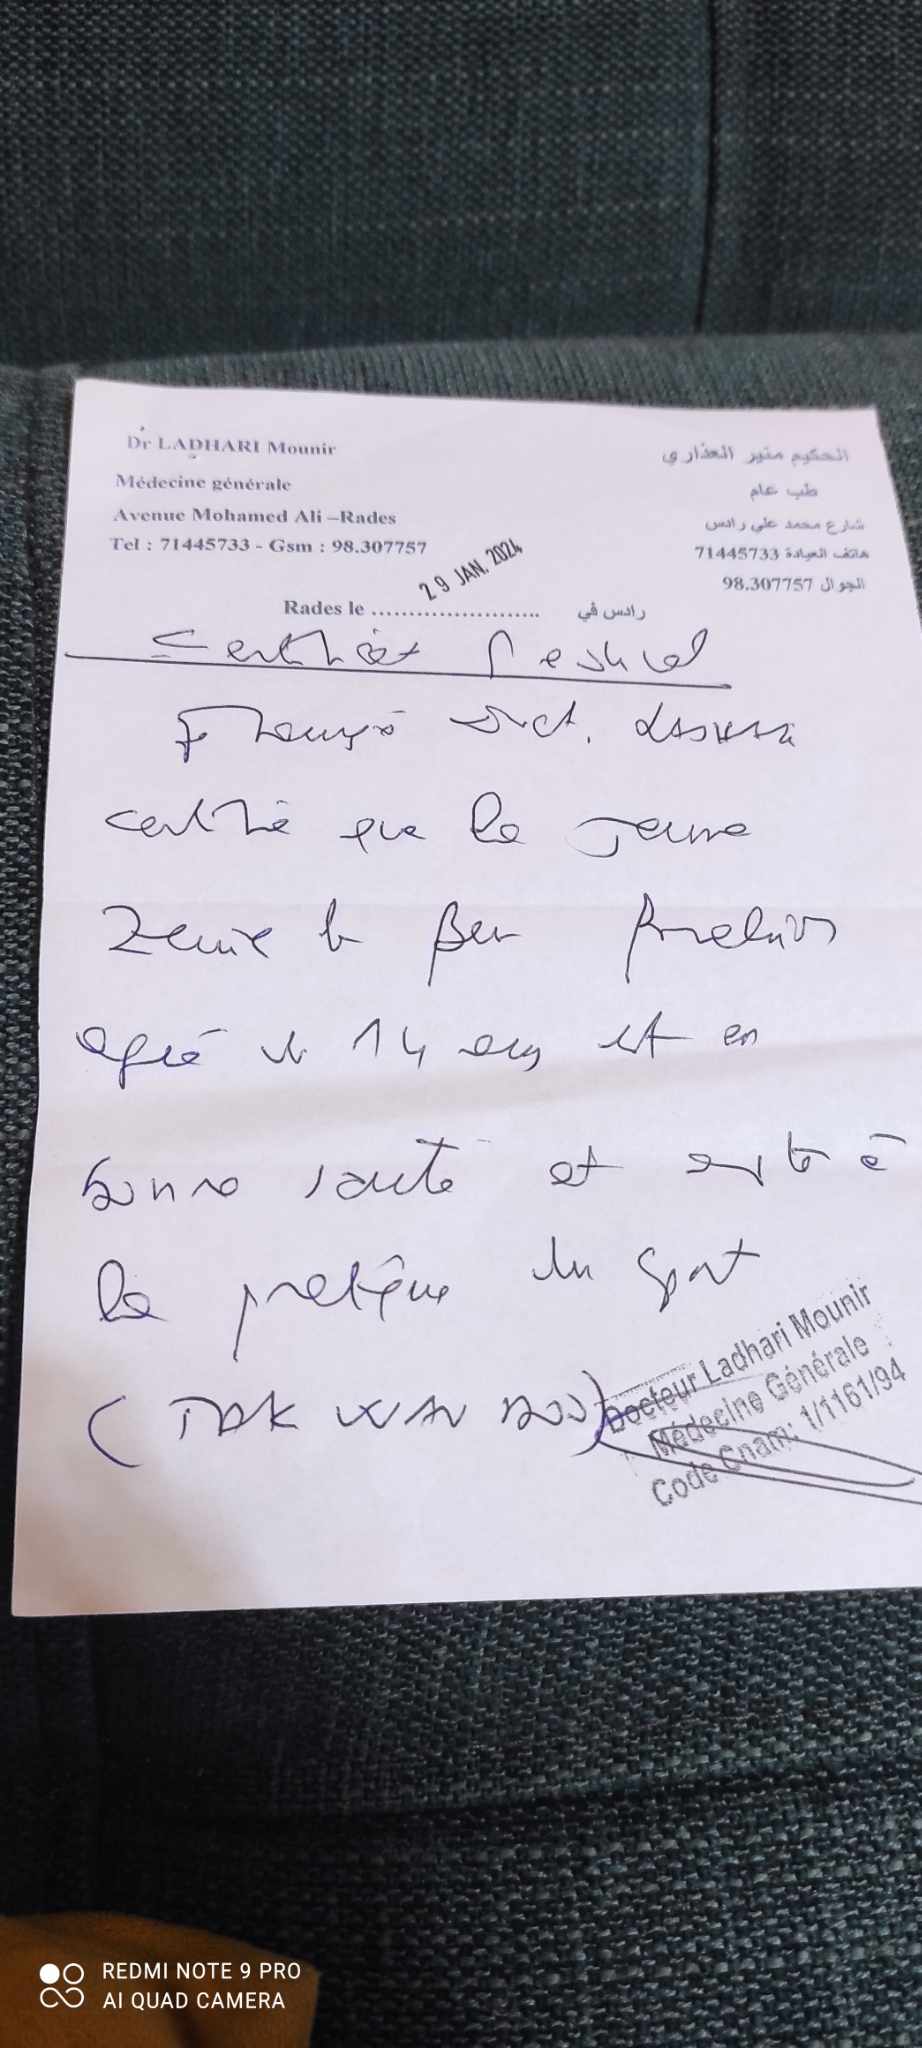 Dr LADHARI Mounir
Médecine générale
Avenue Mohamed Ali –Rades
Tel : 71445733 - Gsm : 98.307757
الحكيم منير العذاري
طب عام
شارع محمد علي رادس
هاتف العيادة 71445733
الجوال 98.307757
29 JAN. 2024
Rades le ........................ رادس في
Certificat Médical
certifie que le jeune
Ben
agé de 14 ans est en
bonne santé et apte à
la pratique du sport
(TAEKWANDO)
Docteur Ladhari Mounir
Médecine Générale
Code Cnam: 1/1161/94
REDMI NOTE 9 PRO
AI QUAD CAMERA